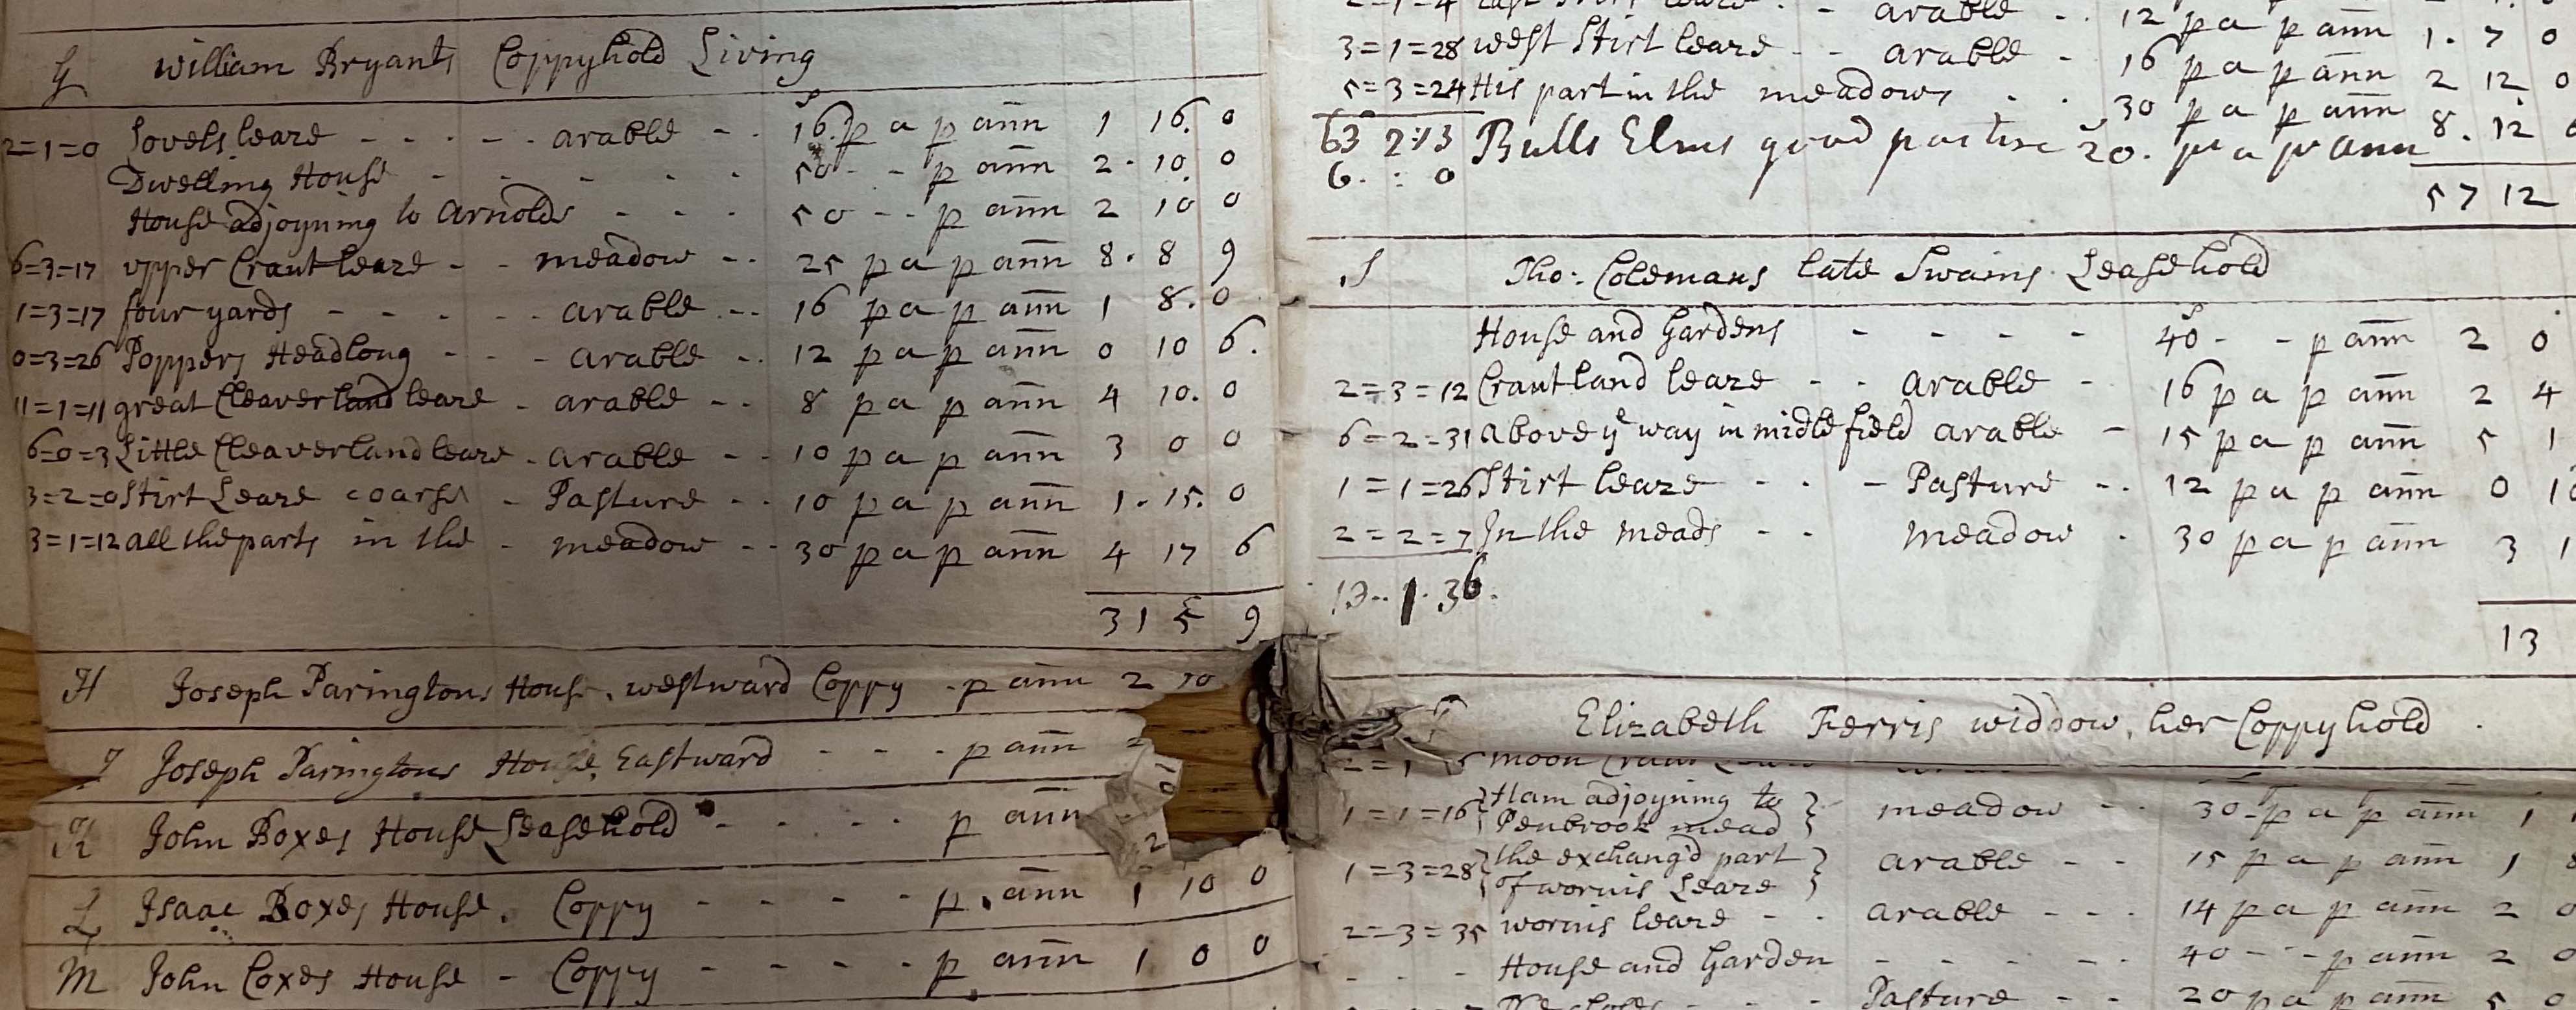 G William Bryants Coppyhold Living
2=1=0 Lovels leaze - - - - - arable - - 16s. p a p ann 1 16. 0
Dwelling House - - - - - - 50 - - p ann 2 - 10. 0
House adjoyning to Arnolds - - - 50 - - p ann 2 10 0
6=3=17 upper Craut leaze - - meadow - - 25 p a p ann 8. 8 9
1=3=17 four yards - - - - - arable - - 16 p a p ann 1 8. 0
0=3=26 Poppers Headlong - - - arable - - 12 p a p ann 0 10 6.
11=1=11 great Cleaverland leaze - arable - - 8 p a p ann 4 10. 0
6=0=3 Little Cleaverland leaze - arable - - 10 p a p ann 3 0 0
3=2=0 Stirt Leaze coarse - Pasture - - 10 p a p ann 1. 15. 0
3=1=12 all the parts in the - meadow - - 30 p a p ann 4 17 6
31 5 9
H Joseph Paringtons House, westward Coppy - p ann 2 10
J Joseph Paringtons House, Eastward - - - p ann 2
K John Boxes House Leasehold - - - - p ann
L Isaac Boxes House. Coppy - - - - p. ann 1 10 0
M John Coxes House - Coppy - - - - p ann 1 0 0
2=1=4 East Stirt leaze - - arable - - 12 p a p ann 1. 7 0
3=1=28 west Stirt leaze - - arable - 16 p a p ann 2 12 0
5=3=24 His part in the meadows - - 30 p a p ann 8. 12
63 2:13 Bulls Elms good pasture 20. p a p ann
6. : 0
57 12
S Tho: Colemans late Swains Leasehold
House and Gardens - - - - 40s - - p ann 2 0
2=3=12 Crautland leaze - - arable - 16 p a p ann 2 4
6=2=31 above ye way in midle field arable - 15 p a p ann 5 1
1=1=26 Stirt leaze - - - Pasture - - 12 p a p ann 0 1
2=2=7 In the meads - - meadow - 30 p a p ann 3 1
13.. 1. 36.
13
T Elizabeth Ferris widdow, her Coppyhold
moon Craut
1=1=16 {Ham adjoyning to
Penbrook mead} meadow - - 30 - p a p ann 1
1=3=28 {the exchang'd part
of wornis Leaze} arable - - 15 p a p ann 1 8
2=3=35 wornis leaze - - arable - - - 14 p a p ann 2 0
- - - House and Garden - - - - - 40 - - p ann 2 0
Pasture - - 20 p a p ann 5 0